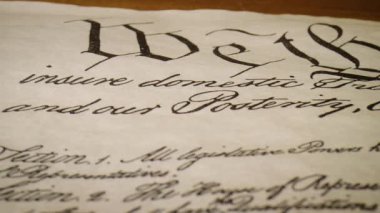 We the
insure domestic
and our Posterity,
Section 1. All legislative Powers
Representatives.
Section 2. The House of
Qualifications